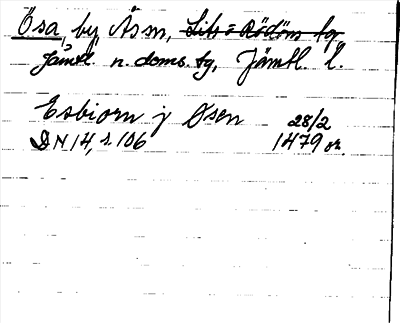 Ösa, by, Åsn, Lits o Rödöns tg
Jämtl. n. doms. tg, Jämtl. l.
Esbiorn j Øsen 28/2
DN 14, s. 106 1479 or.